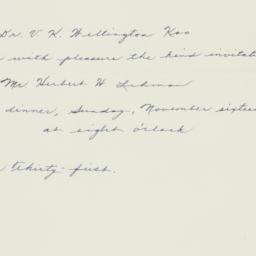 Dr. V. K. Wellington Koo
with pleasure the kind invitat
Mr Herbert H. Lehman
dinner, Sunday, November sixtee
at eight o'clock
thirty-first.